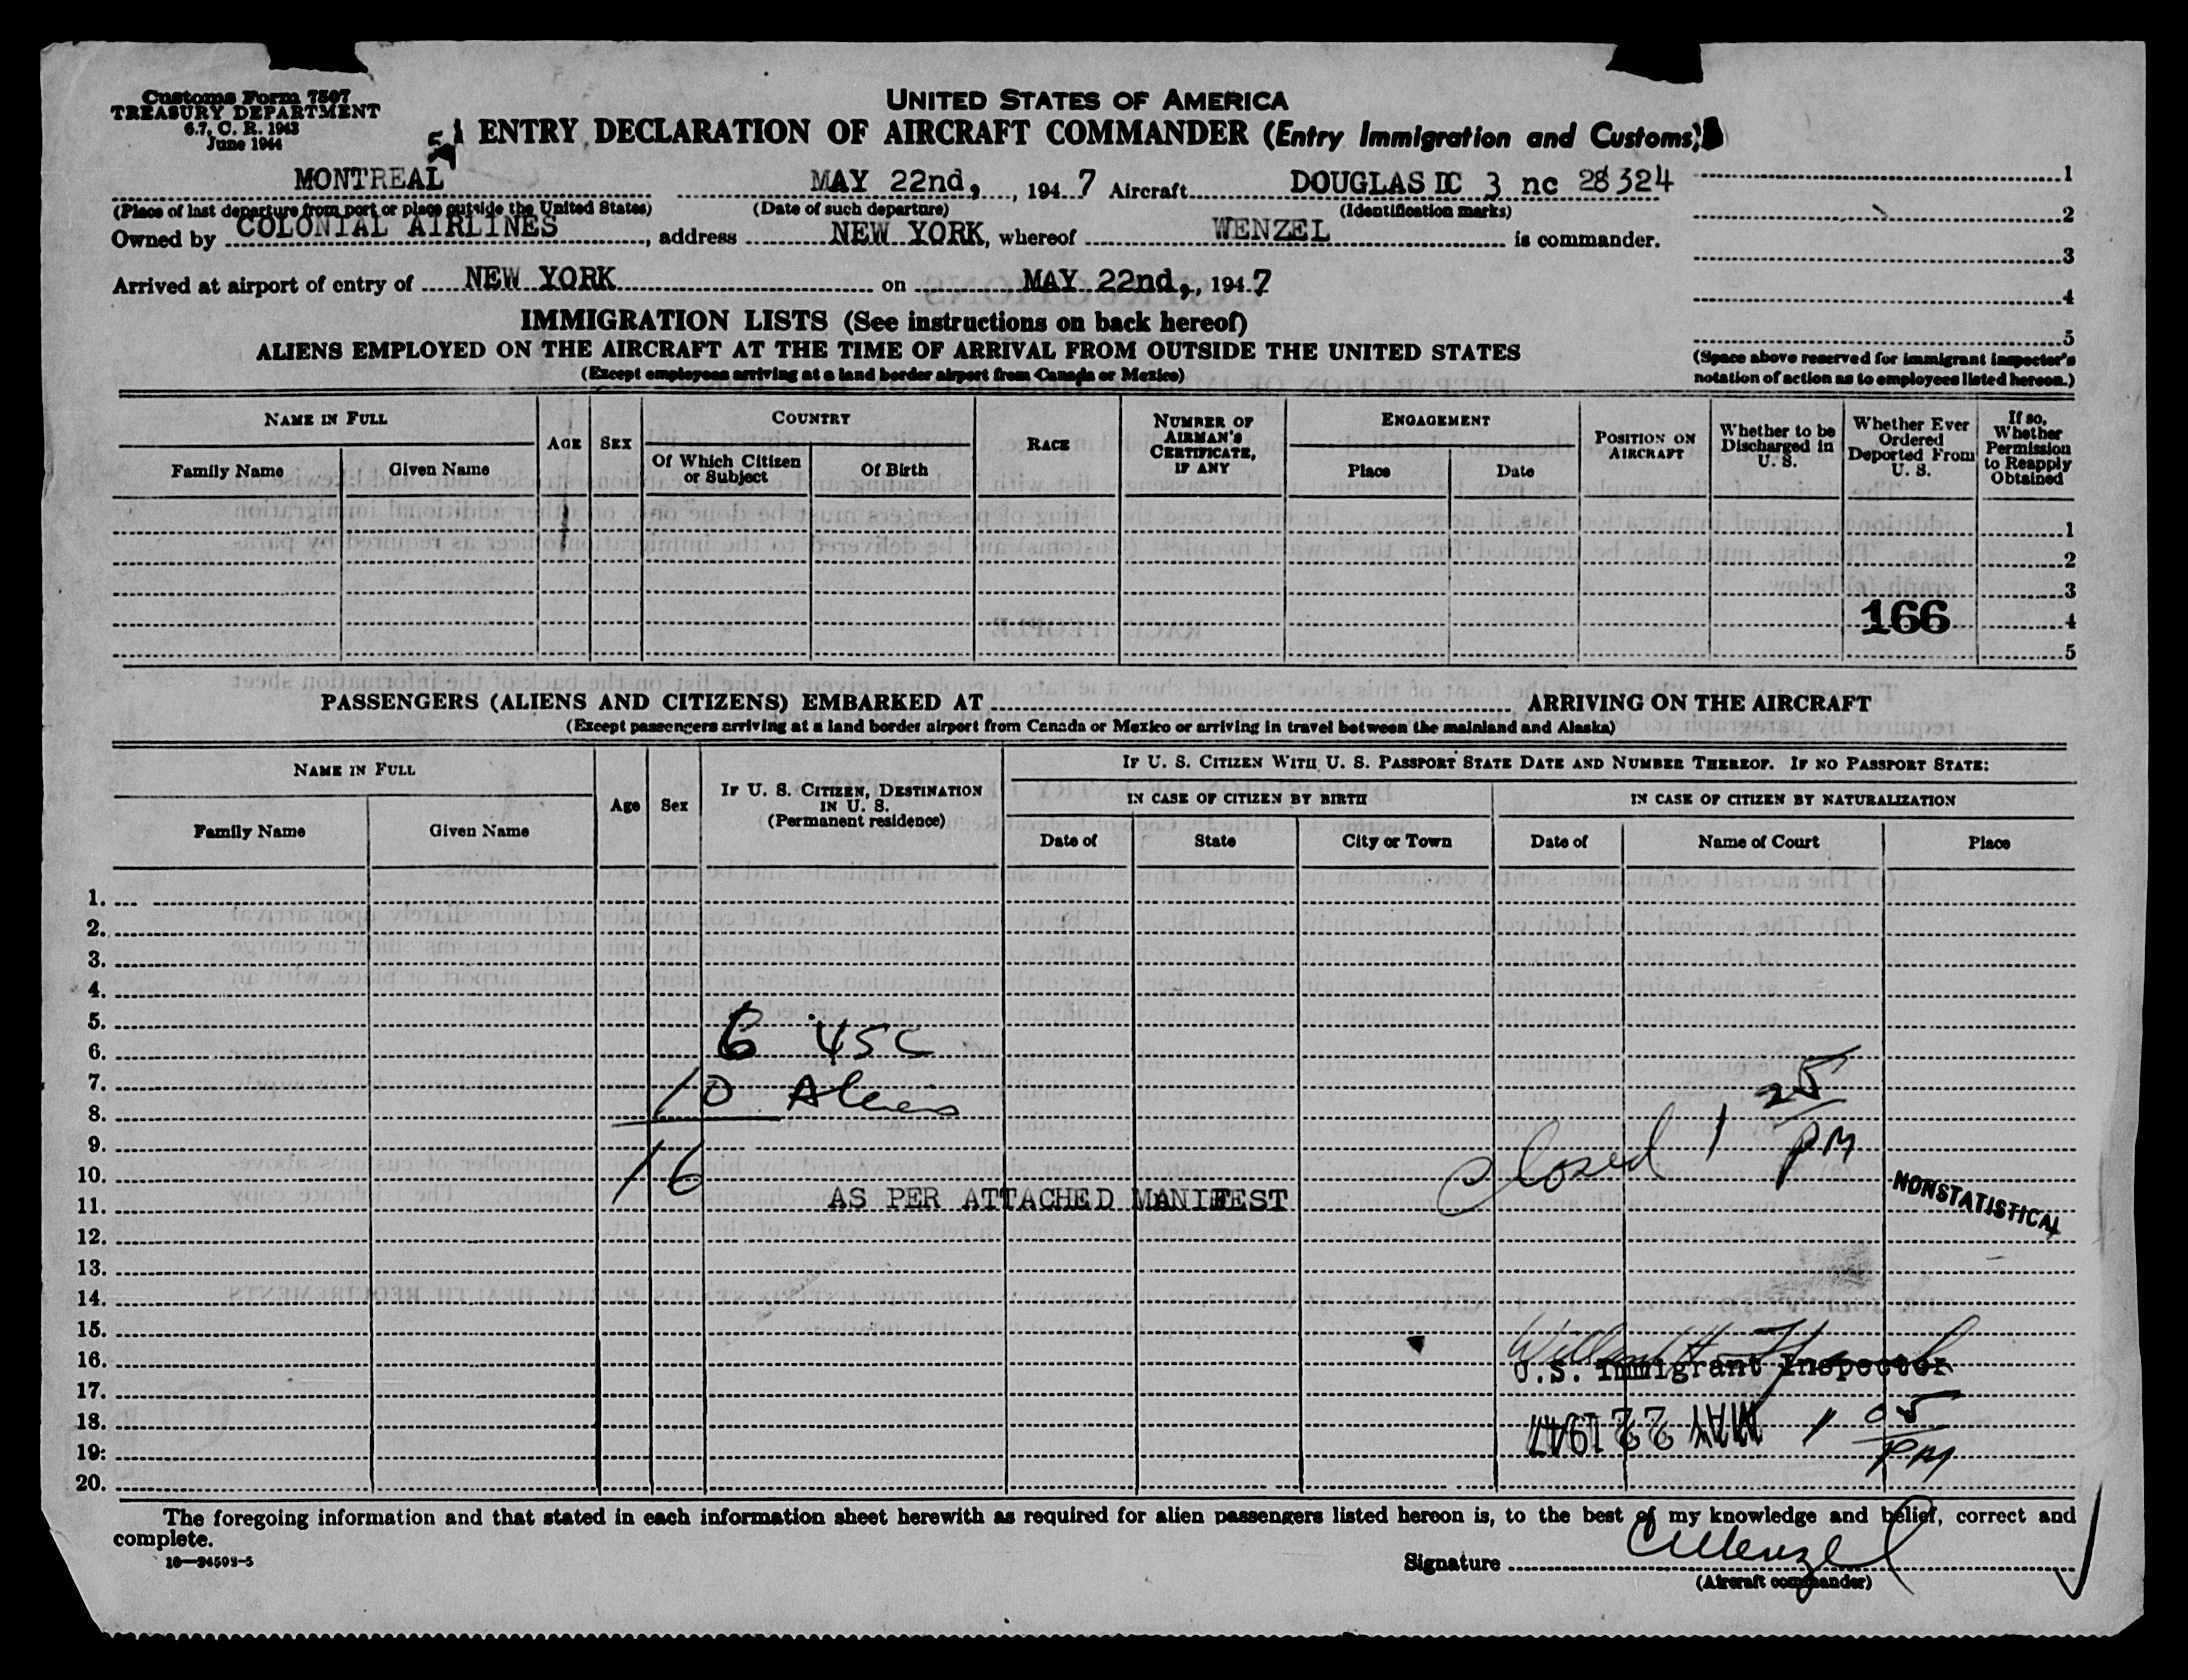 Customs Form 7507
TREASURY DEPARTMENT
6.7, C. R. 1943
June 1944
UNITED STATES OF AMERICA
ENTRY DECLARATION OF AIRCRAFT COMMANDER (Entry Immigration and Customs)
MONTREAL MAY 22nd, , 1947 Aircraft DOUGLAS DC 3 nc 28324
(Place of last departure from port or place outside the United States) (Date of such departure) (Identification marks)
Owned by COLONIAL AIRLINES, address NEW YORK, whereof WENZEL is commander.
Arrived at airport of entry of NEW YORK on MAY 22nd,, 1947
1
2
3
4
5
(Space above reserved for immigrant inspector's
notation of action as to employees listed hereon.)
IMMIGRATION LISTS (See instructions on back hereof)
ALIENS EMPLOYED ON THE AIRCRAFT AT THE TIME OF ARRIVAL FROM OUTSIDE THE UNITED STATES
(Except employees arriving at a land border airport from Canada or Mexico)
NAME IN FULL
Family Name
Given Name
AGE
SEX
COUNTRY
Of Which Citizen
or Subject
Of Birth
RACE
NUMBER OF
AIRMAN'S
CERTIFICATE,
IF ANY
ENGAGEMENT
Place
Date
POSITION ON
AIRCRAFT
Whether to be
Discharged in
U. S.
Whether Ever
Ordered
Deported From
U. S.
If so,
Whether
Permission
to Reapply
Obtained
1
2
3
166
4
5
PASSENGERS (ALIENS AND CITIZENS) EMBARKED AT ARRIVING ON THE AIRCRAFT
(Except passengers arriving at a land border airport from Canada or Mexico or arriving in travel between the mainland and Alaska)
NAME IN FULL
Family Name
Given Name
Age
Sex
IF U. S. CITIZEN, DESTINATION
IN U. S.
(Permanent residence)
IF U. S. CITIZEN WITH U. S. PASSPORT STATE DATE AND NUMBER THEREOF. IF NO PASSPORT STATE:
IN CASE OF CITIZEN BY BIRTH
IN CASE OF CITIZEN BY NATURALIZATION
Date of
State
City or Town
Date of
Name of Court
Place
1.
2.
3.
4.
5.
6. 6 USC
7. 10 Aliens
8.
9. Closed 1 25 PM
10. 16
11. AS PER ATTACHED MANIFEST NONSTATISTICAL
12.
13.
14.
15.
16. U.S. Immigrant Inspector
17.
18. MAY 22 1947 1 05 PM
19.
20.
The foregoing information and that stated in each information sheet herewith as required for alien passengers listed hereon is, to the best of my knowledge and belief, correct and
complete.
16—34593-5
Signature CWenzel
(Aircraft commander)